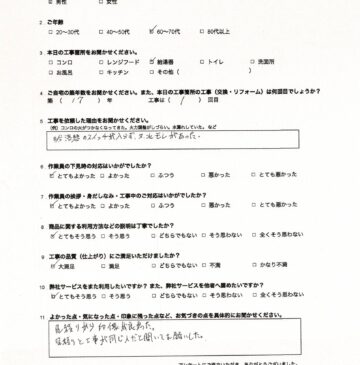 □ 男性 □ 女性
2 ご年齢
□ 20〜30代 □ 40〜50代 ☑ 60〜70代 □ 80代以上
3 本日の工事箇所をお聞かせください。
□ コンロ □ レンジフード ☑ 給湯器 □ トイレ □ 洗面所
□ お風呂 □ キッチン □ その他( )
4 ご自宅の築年数をお聞かせください。また、本日の工事箇所の工事(交換・リフォーム)は何回目でしょうか?
築( 17 )年 工事は( 1 )回目
5 工事を依頼した理由をお聞かせください。
(例)コンロの火がつかなくなってきた、火力調整がしづらい、水漏れしていた、など
給湯器のスイッチが入らず、水もれがあった。
6 作業員の下見時の対応はいかがでしたか?
☑ とてもよかった □ よかった □ ふつう □ 悪かった □ とても悪かった
7 作業員の挨拶・身だしなみ・工事中のご対応はいかがでしたか?
☑ とてもよかった □ よかった □ ふつう □ 悪かった □ とても悪かった
8 商品に関する利用方法などの説明は丁寧でしたか?
☑ とてもそう思う □ そう思う □ どちらでもない □ そう思わない □ 全くそう思わない
9 工事の品質(仕上がり)にご満足いただけましたか?
☑ 大満足 □ 満足 □ どちらでもない □ 不満 □ かなり不満
10 弊社サービスをまた利用したいですか?また、弊社サービスを他者へ薦めたいですか?
☑ とてもそう思う □ そう思う □ どちらでもない □ そう思わない □ 全くそう思わない
11 よかった点・気になった点・印象に残った点など、お気づきの点を具体的にお聞かせください。
見積り時の印象が良かった。
見積りと工事が同じ人だと聞いてお願いした。
アンケートにご協力いただき、ありがとうございました。